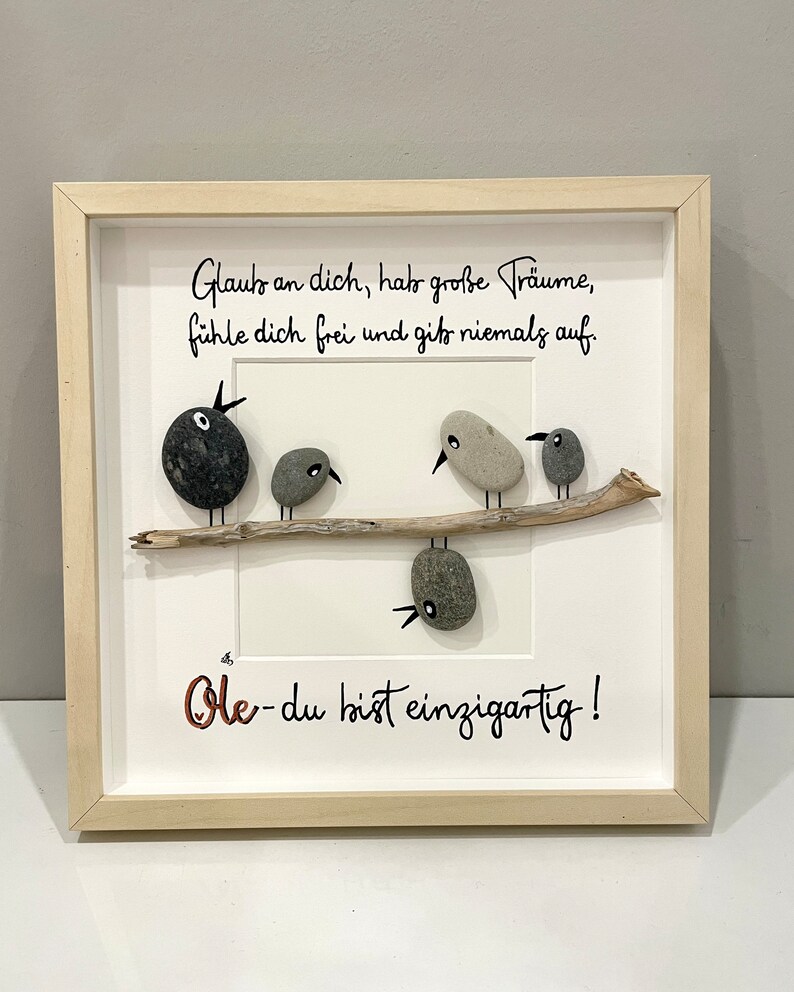 Glaub an dich, hab große Träume,
fühle dich frei und gib niemals auf.
Ole - du bist einzigartig!